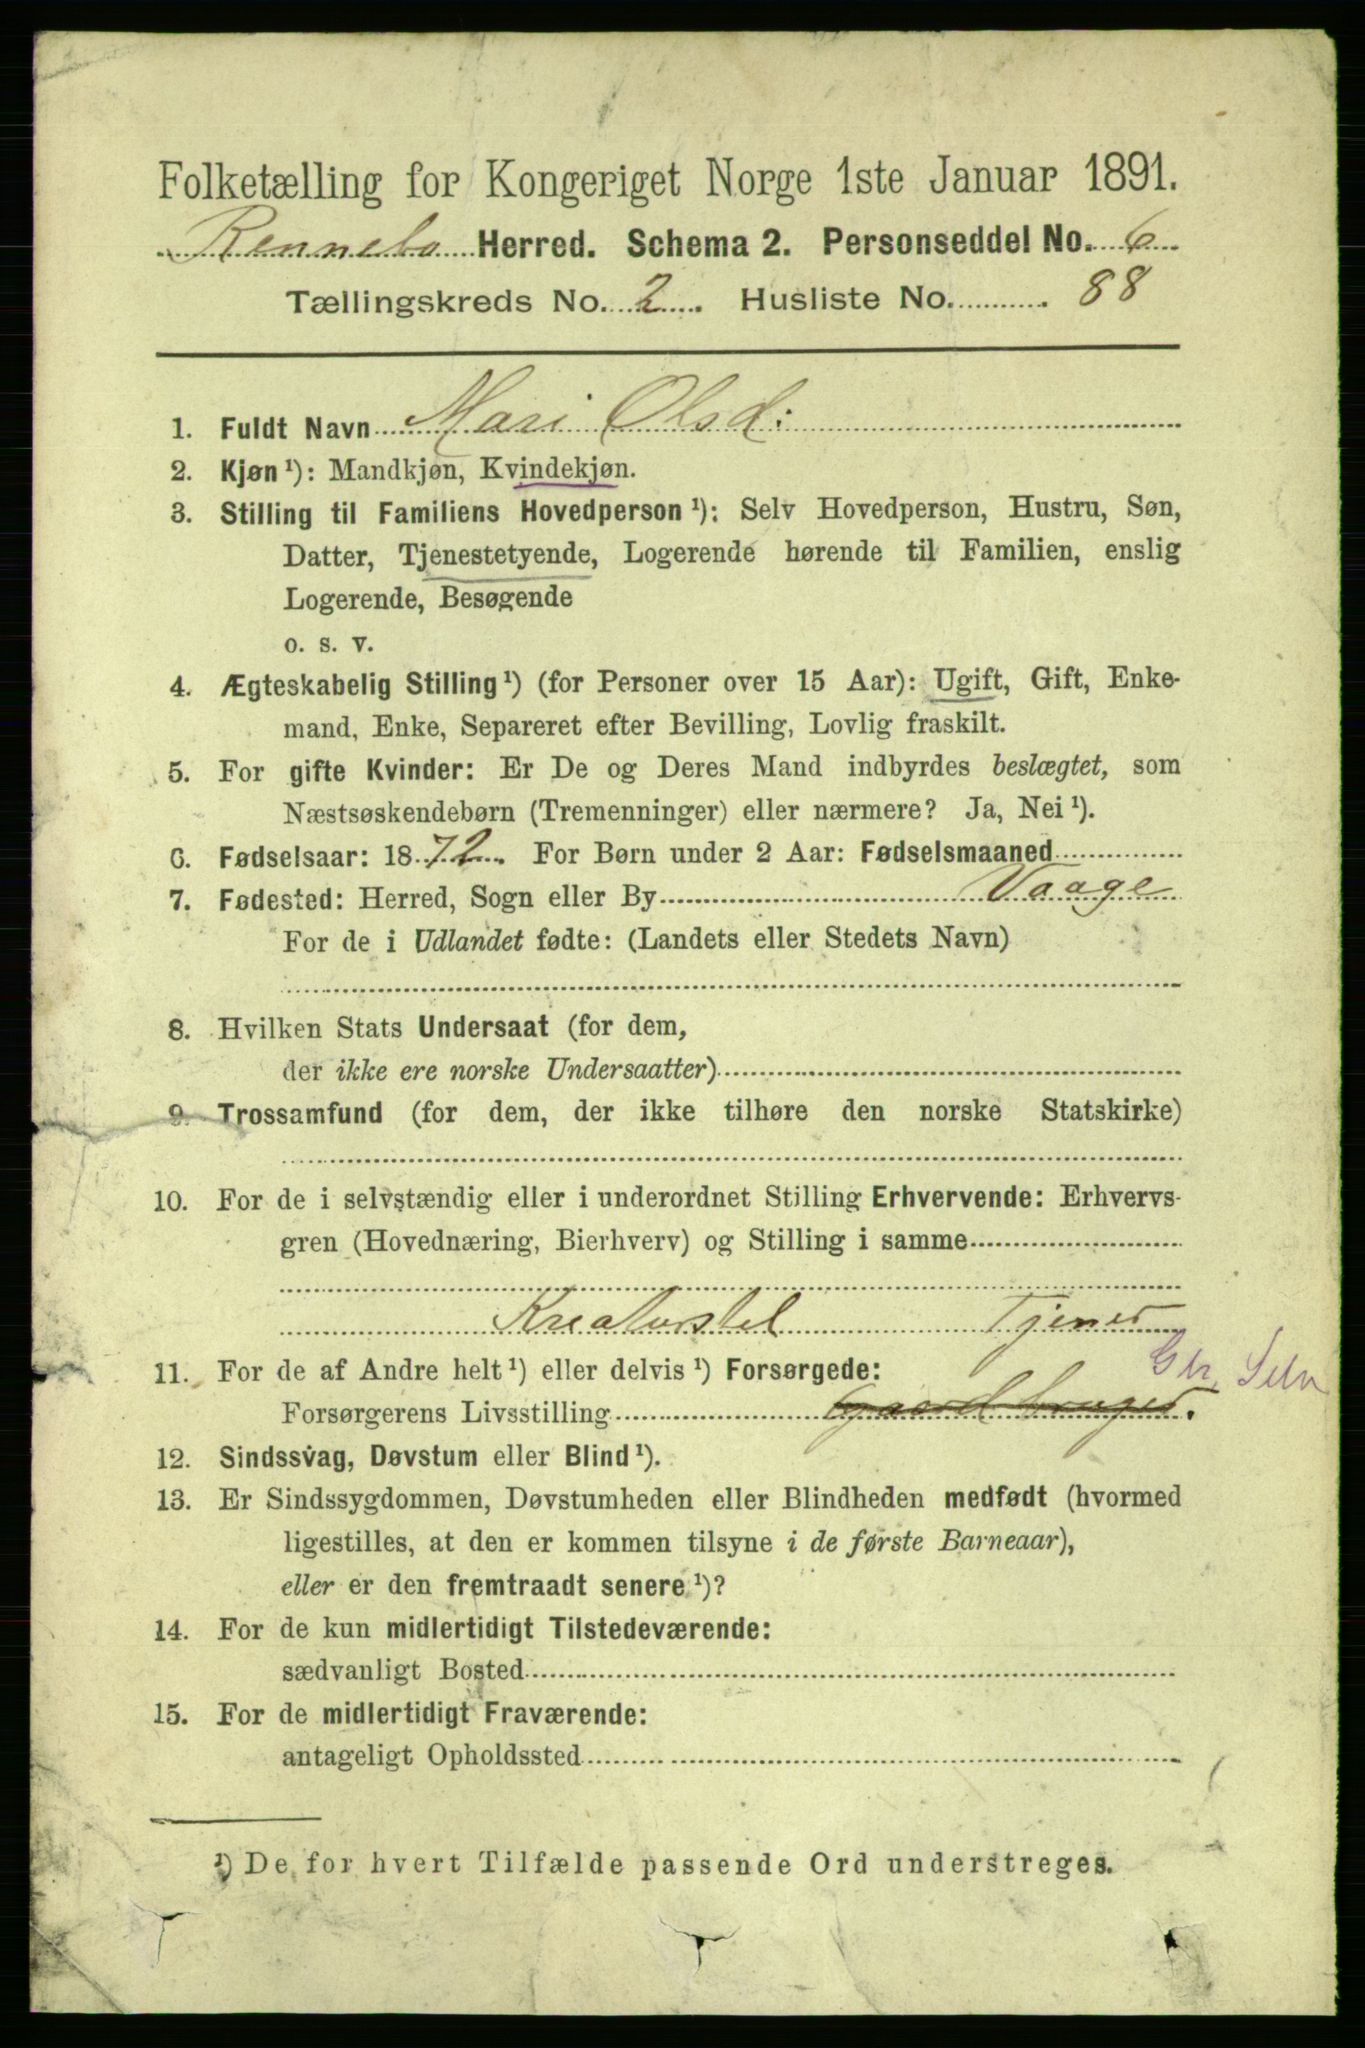 Folketælling for Kongeriget Norge 1ste Januar 1891.
Rennebo Herred. Schema 2. Personseddel No. 6
Tællingskreds No. 2. Husliste No. 88
1. Fuldt Navn Mari Olsd:
2. Kjøn ¹): Mandkjøn, Kvindekjøn.
3. Stilling til Familiens Hovedperson ¹): Selv Hovedperson, Hustru, Søn,
Datter, Tjenestetyende, Logerende hørende til Familien, enslig
Logerende, Besøgende
o. s. v.
4. Ægteskabelig Stilling ¹) (for Personer over 15 Aar): Ugift, Gift, Enke-
mand, Enke, Separeret efter Bevilling, Lovlig fraskilt.
5. For gifte Kvinder: Er De og Deres Mand indbyrdes beslægtet, som
Næstsøskendebørn (Tremenninger) eller nærmere? Ja, Nei ¹).
6. Fødselsaar: 1872. For Børn under 2 Aar: Fødselsmaaned
7. Fødested: Herred, Sogn eller By Vaage
For de i Udlandet fødte: (Landets eller Stedets Navn)
8. Hvilken Stats Undersaat (for dem,
der ikke ere norske Undersaatter)
9. Trossamfund (for dem, der ikke tilhøre den norske Statskirke)
10. For de i selvstændig eller i underordnet Stilling Erhvervende: Erhvervs-
gren (Hovednæring, Bierhverv) og Stilling i samme
Kreaturstel Tjener
11. For de af Andre helt ¹) eller delvis ¹) Forsørgede:
Forsørgerens Livsstilling Gaardbruger.
12. Sindssvag, Døvstum eller Blind ¹).
13. Er Sindssygdommen, Døvstumheden eller Blindheden medfødt (hvormed
ligestilles, at den er kommen tilsyne i de første Barneaar),
eller er den fremtraadt senere ¹)?
14. For de kun midlertidigt Tilstedeværende:
sædvanligt Bosted
15. For de midlertidigt Fraværende:
antageligt Opholdssted
¹) De for hvert Tilfælde passende Ord understreges.